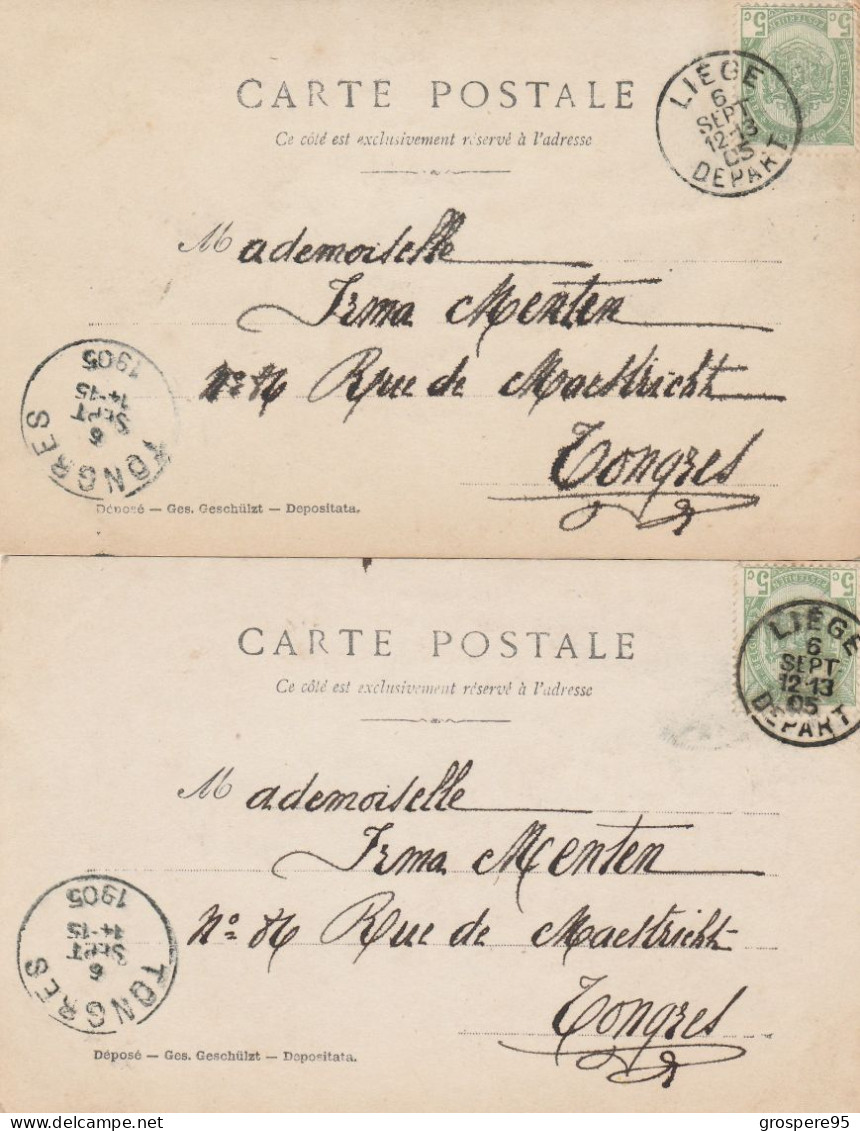 5c 5c
CARTE POSTALE
LIÉGE
6
SEPT
12-13
05
DEPART
Ce côté est exclusivement réservé à l'adresse
Mademoiselle
Irma Menten
N° 86 Rue de Maestricht
Tongres
TONGRES
6
SEPT
14-15
1905
Déposé — Ges. Geschützt — Depositata.
5c 5c
CARTE POSTALE
LIÉGE
6
SEPT
12-13
05
DEPART
Ce côté est exclusivement réservé à l'adresse
Mademoiselle
Irma Menten
N° 86 Rue de Maestricht
Tongres
TONGRES
6
SEPT
14-15
1905
Déposé — Ges. Geschützt — Depositata.
delcampe.net
grospere95